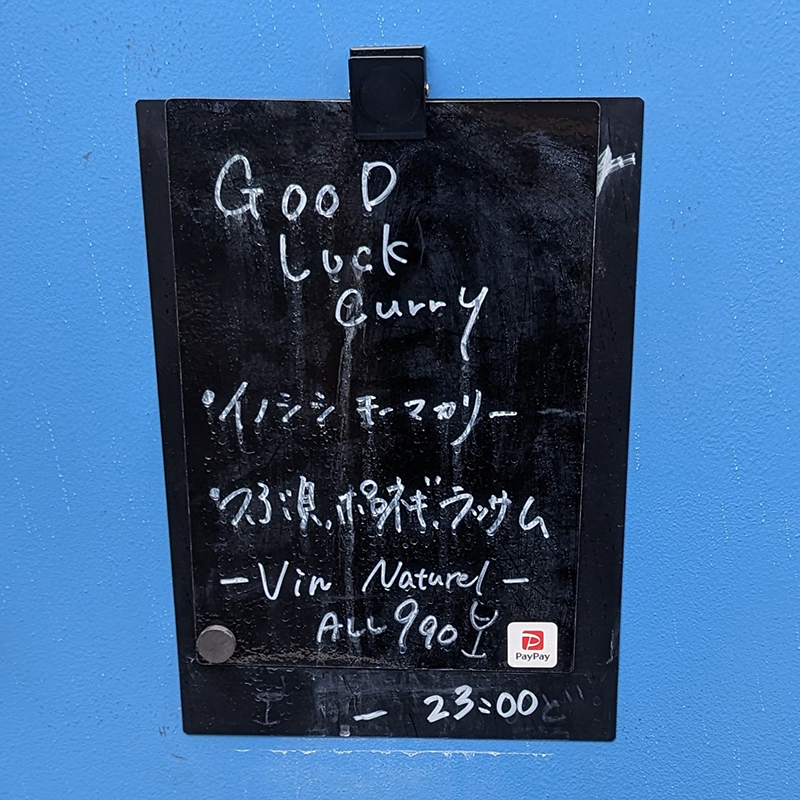 GOOD
Luck
Curry
・イノシシ キーマカリー
・つぶ貝。ポロネギ。ラッサム
－Vin Naturel－
ALL 990
PayPay
－ 23:00